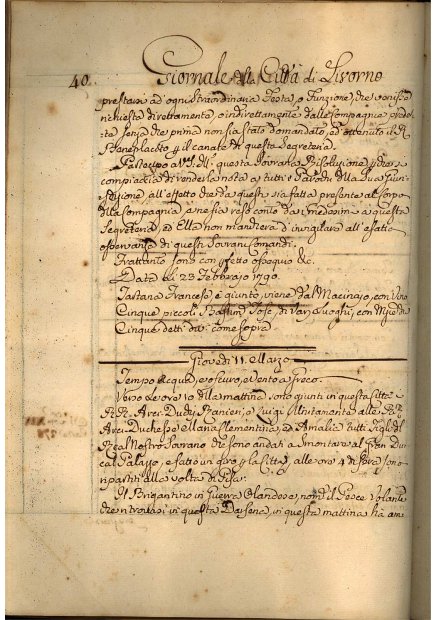 40.
Giornale della Città di Livorno
prestarsi ad ogni Straordinaria Festa, o Funzione, che venisse
richiesto direttamente, o indirettamente dalle Compagnie
senza che prima non sia stato domandato, ed ottenuto il R.
Beneplacito il canale di questa Segreteria.
Partecipo a VS. Ill. questa Sovrana Risoluzione
compiaccia di renderla nota a tutti i Parochi della sua Giuri=
sdizione all'effetto che da questi sia fatta presente al Corpo
della Compagnia, e ne sia reso conto da i medesimi a questa
Segreteria, ed Ella non mancherà d'invigilare all'esatta
osservanza di questi Sovrani Comandi.
Frattanto sono con perfetto ossequio &c.
Data li 23 Febbrajo 1790.
Tartana Francese, è giunto, viene dal Macinajo, con Vino
Cinque piccoli Bastim. Tosc. di Varj Luoghi, con
Cinque detti come sopra
Giovedì 11. Marzo
Tempo Acqua, e oscuro, e Vento a Greco.
Verso le ore 10 della mattina sono giunti in questa Città i
R. R. Arci=Duchi Ranieri, e Luigi Unitamente alle R. R.
Arci=Duchesse Marianna, Clementina, ed Amalia tutti Figli del
Real Nostro Sovrano che sono andati a Smontare al Gran Du=
cal Palazzo, e fatto un giro la Città, alle ore 4 di sera sono
ripartiti alla volta di Pisa.
Il Brigantino in Guerra Olandese, nom. il Pesce Volante
che ritrovasi in questa Darsena, in questa mattina ha am=